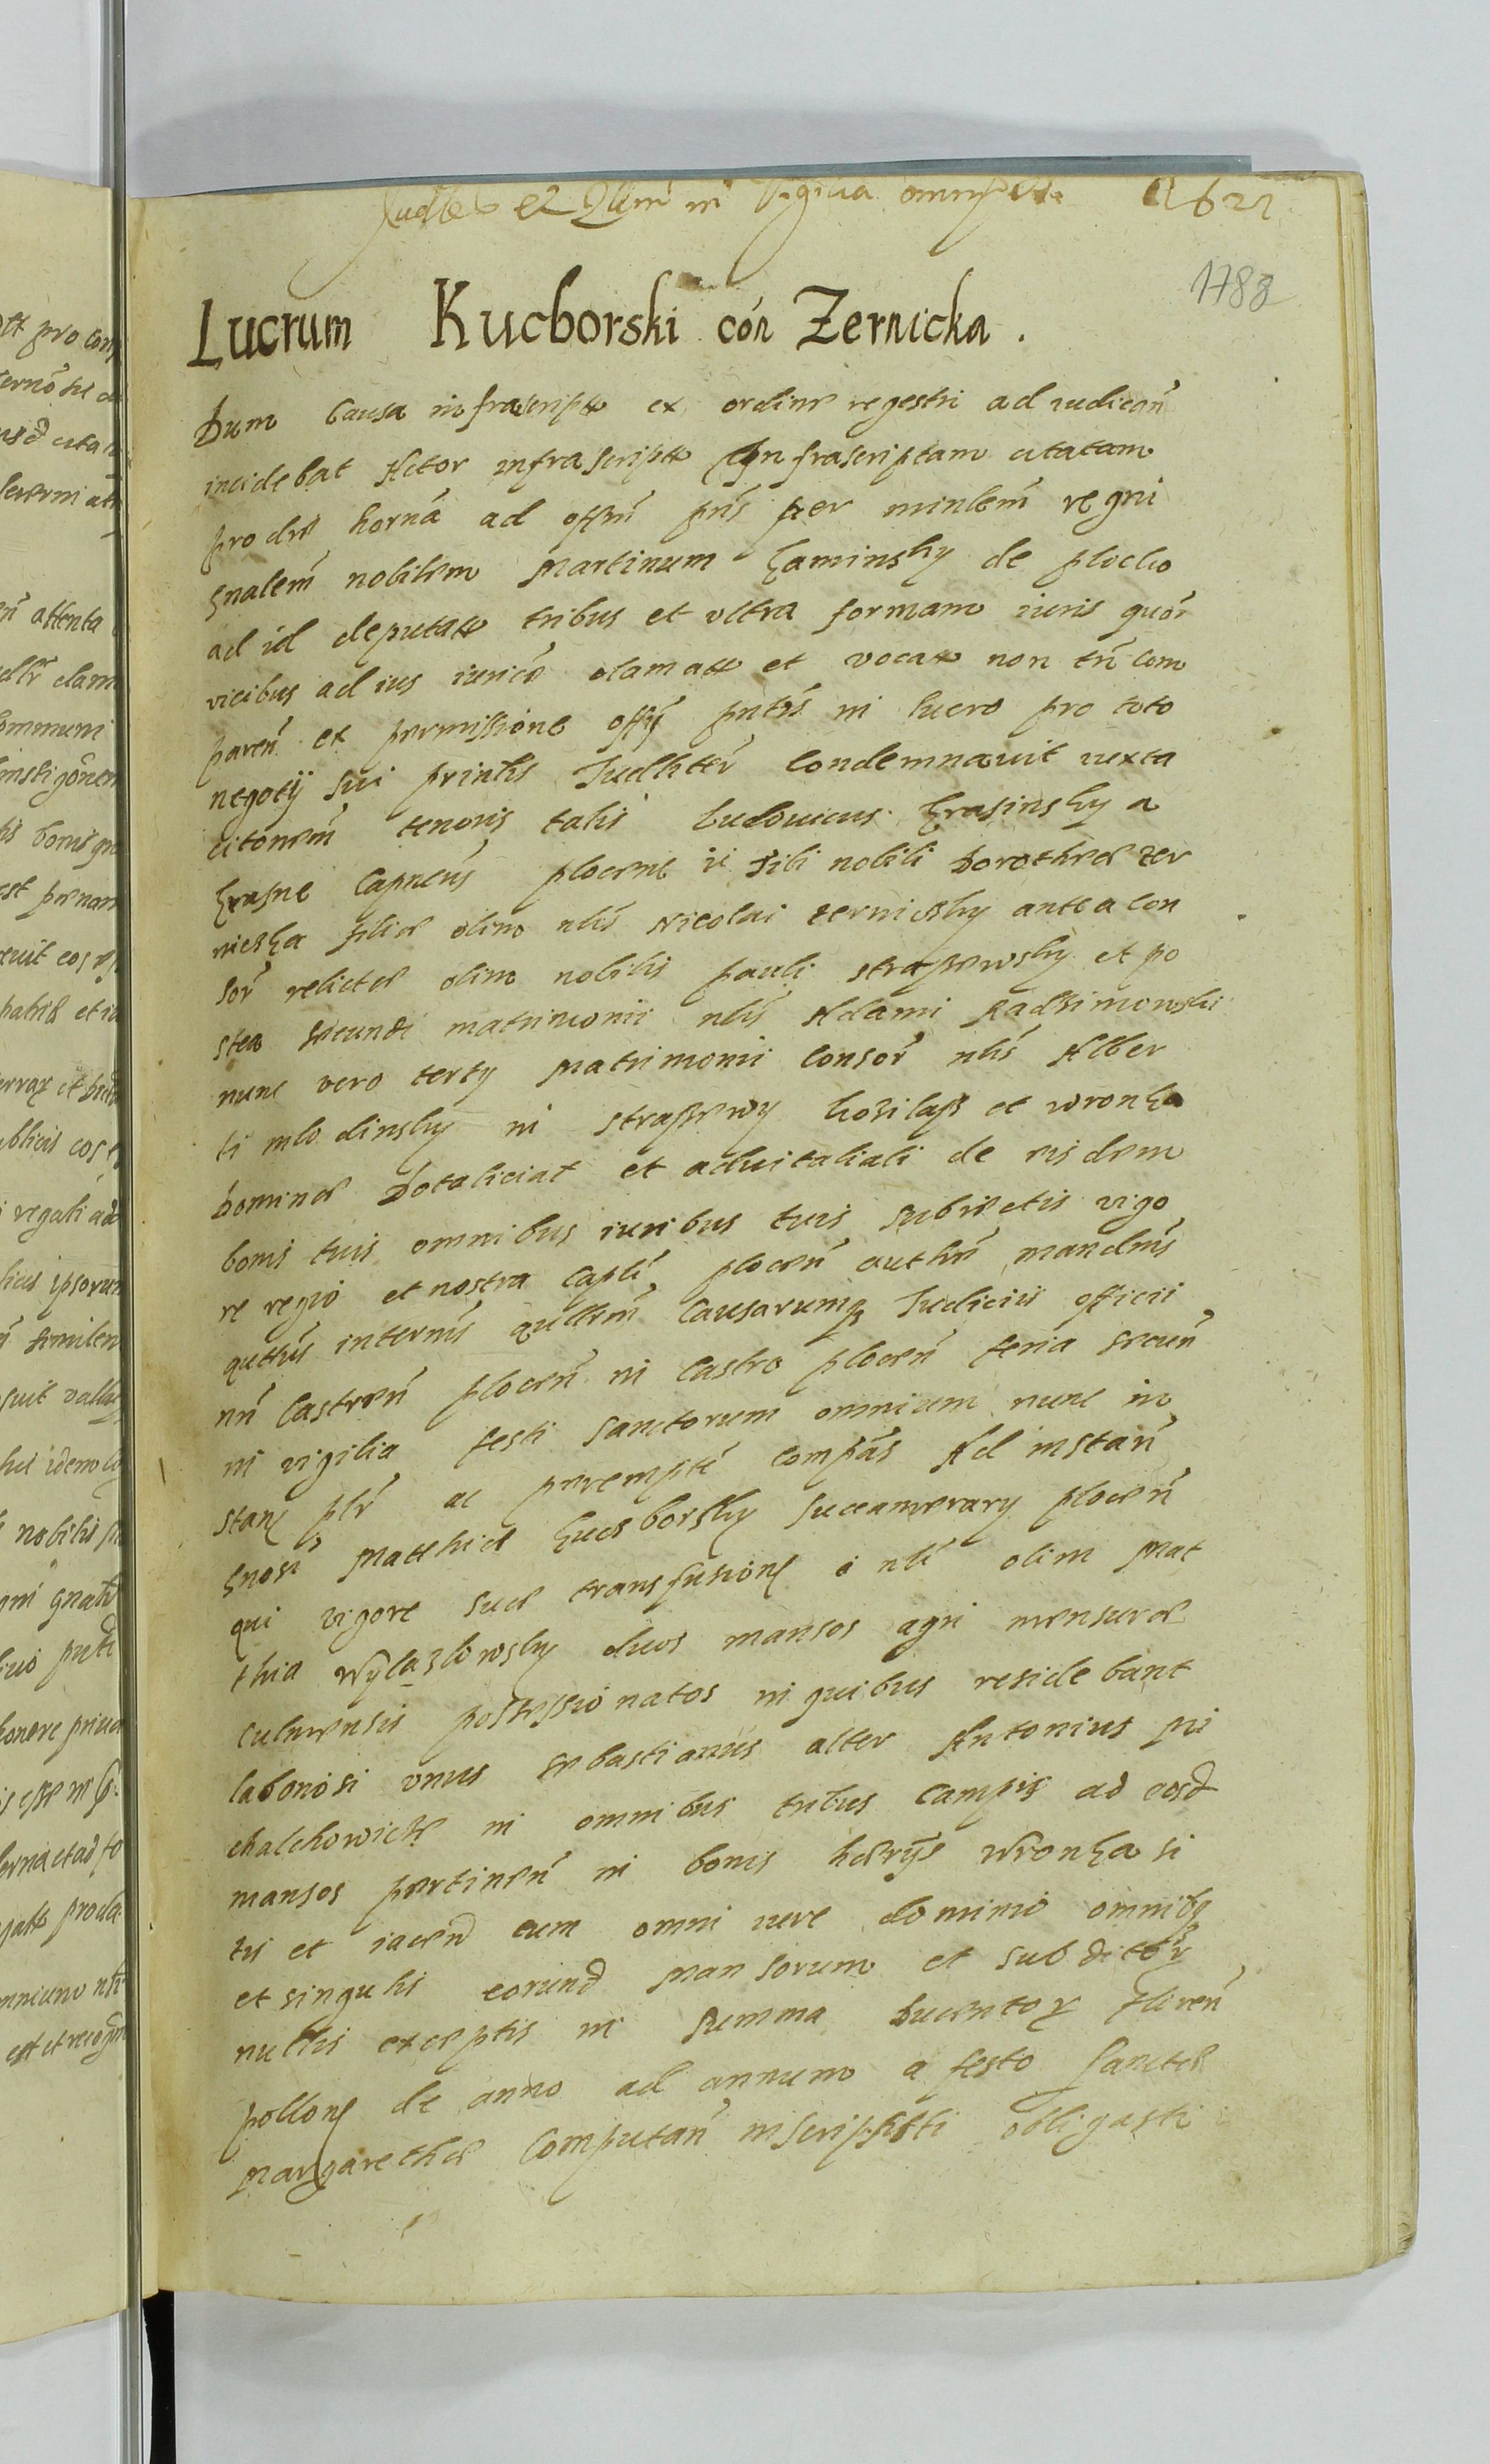 in Vigilia omnium 1621
1788
Lucrum Kucborski cón Zernicka.
Dum Causa infrascripta ex ordine regestri ad iudicań
incidebat Actor infrascriptus Infrascriptam citatam
pro die horná ad offm pńs per minlem regni
gnalem nobilem Martinum Kaminsky de plocko
ad id deputatum tribus et vltra formam iuris
vicibus ad ius clamatam et vocatam non tń com
pareń ex permissione offij pntis in lucro pro toto
negotij sui printis Judlitér Condemnauit iuxta
citonem tenoris talis Ludouicus Krasinsky a
Krasne Capneus plocens tibi nobili Dorotheæ zer
nicska filiæ olim nlis Nicolai zernicsky antea con
sor relictæ olim nobilis pauli straszewsky et po
stea secundi matrimonii nlis Adami Radzimowski
nunc vero tertij Matrimonii Consor nlis Alber
ti mlodinsky in straszewy koziläß et wronka
Dominæ Dotaliciat et aduitaliali de eisdem
bonis tuis omnibus iuribus tuis subiectis vigo
re regio et nostra Capli ploceń autthń mandms
quthus interms qullem Causarumq Judicii officii
nri Castreń ploceń in Castro ploceń feria secun
in vigilia festi Sanctorum omnium nunc in
stan plr ac perempte Compas Ad instań
gnosi Matthiæ Kucsborsky Succamerarij ploceń
qui vigore suæ transfusione à nli olim Mat
thia Wylazlowsky duos mansos agri mensuræ
culmensis possessionatos in quibus residebant
laboriosi vnus Sebastianus alter Antonius Mi
chalchowicze in omnibus tribus campis ad eosd
mansos pertineń in bonis hærijs Wronka si
tis et iacend cum omni iure dominio omnibq
et singulis eorund Mansorum et subditor
nullis exceptis in Summa Ducentor floreń
pollone de anno ad annum a festo Sanctæ
Margarethæ Computań inscripsisti obligasti